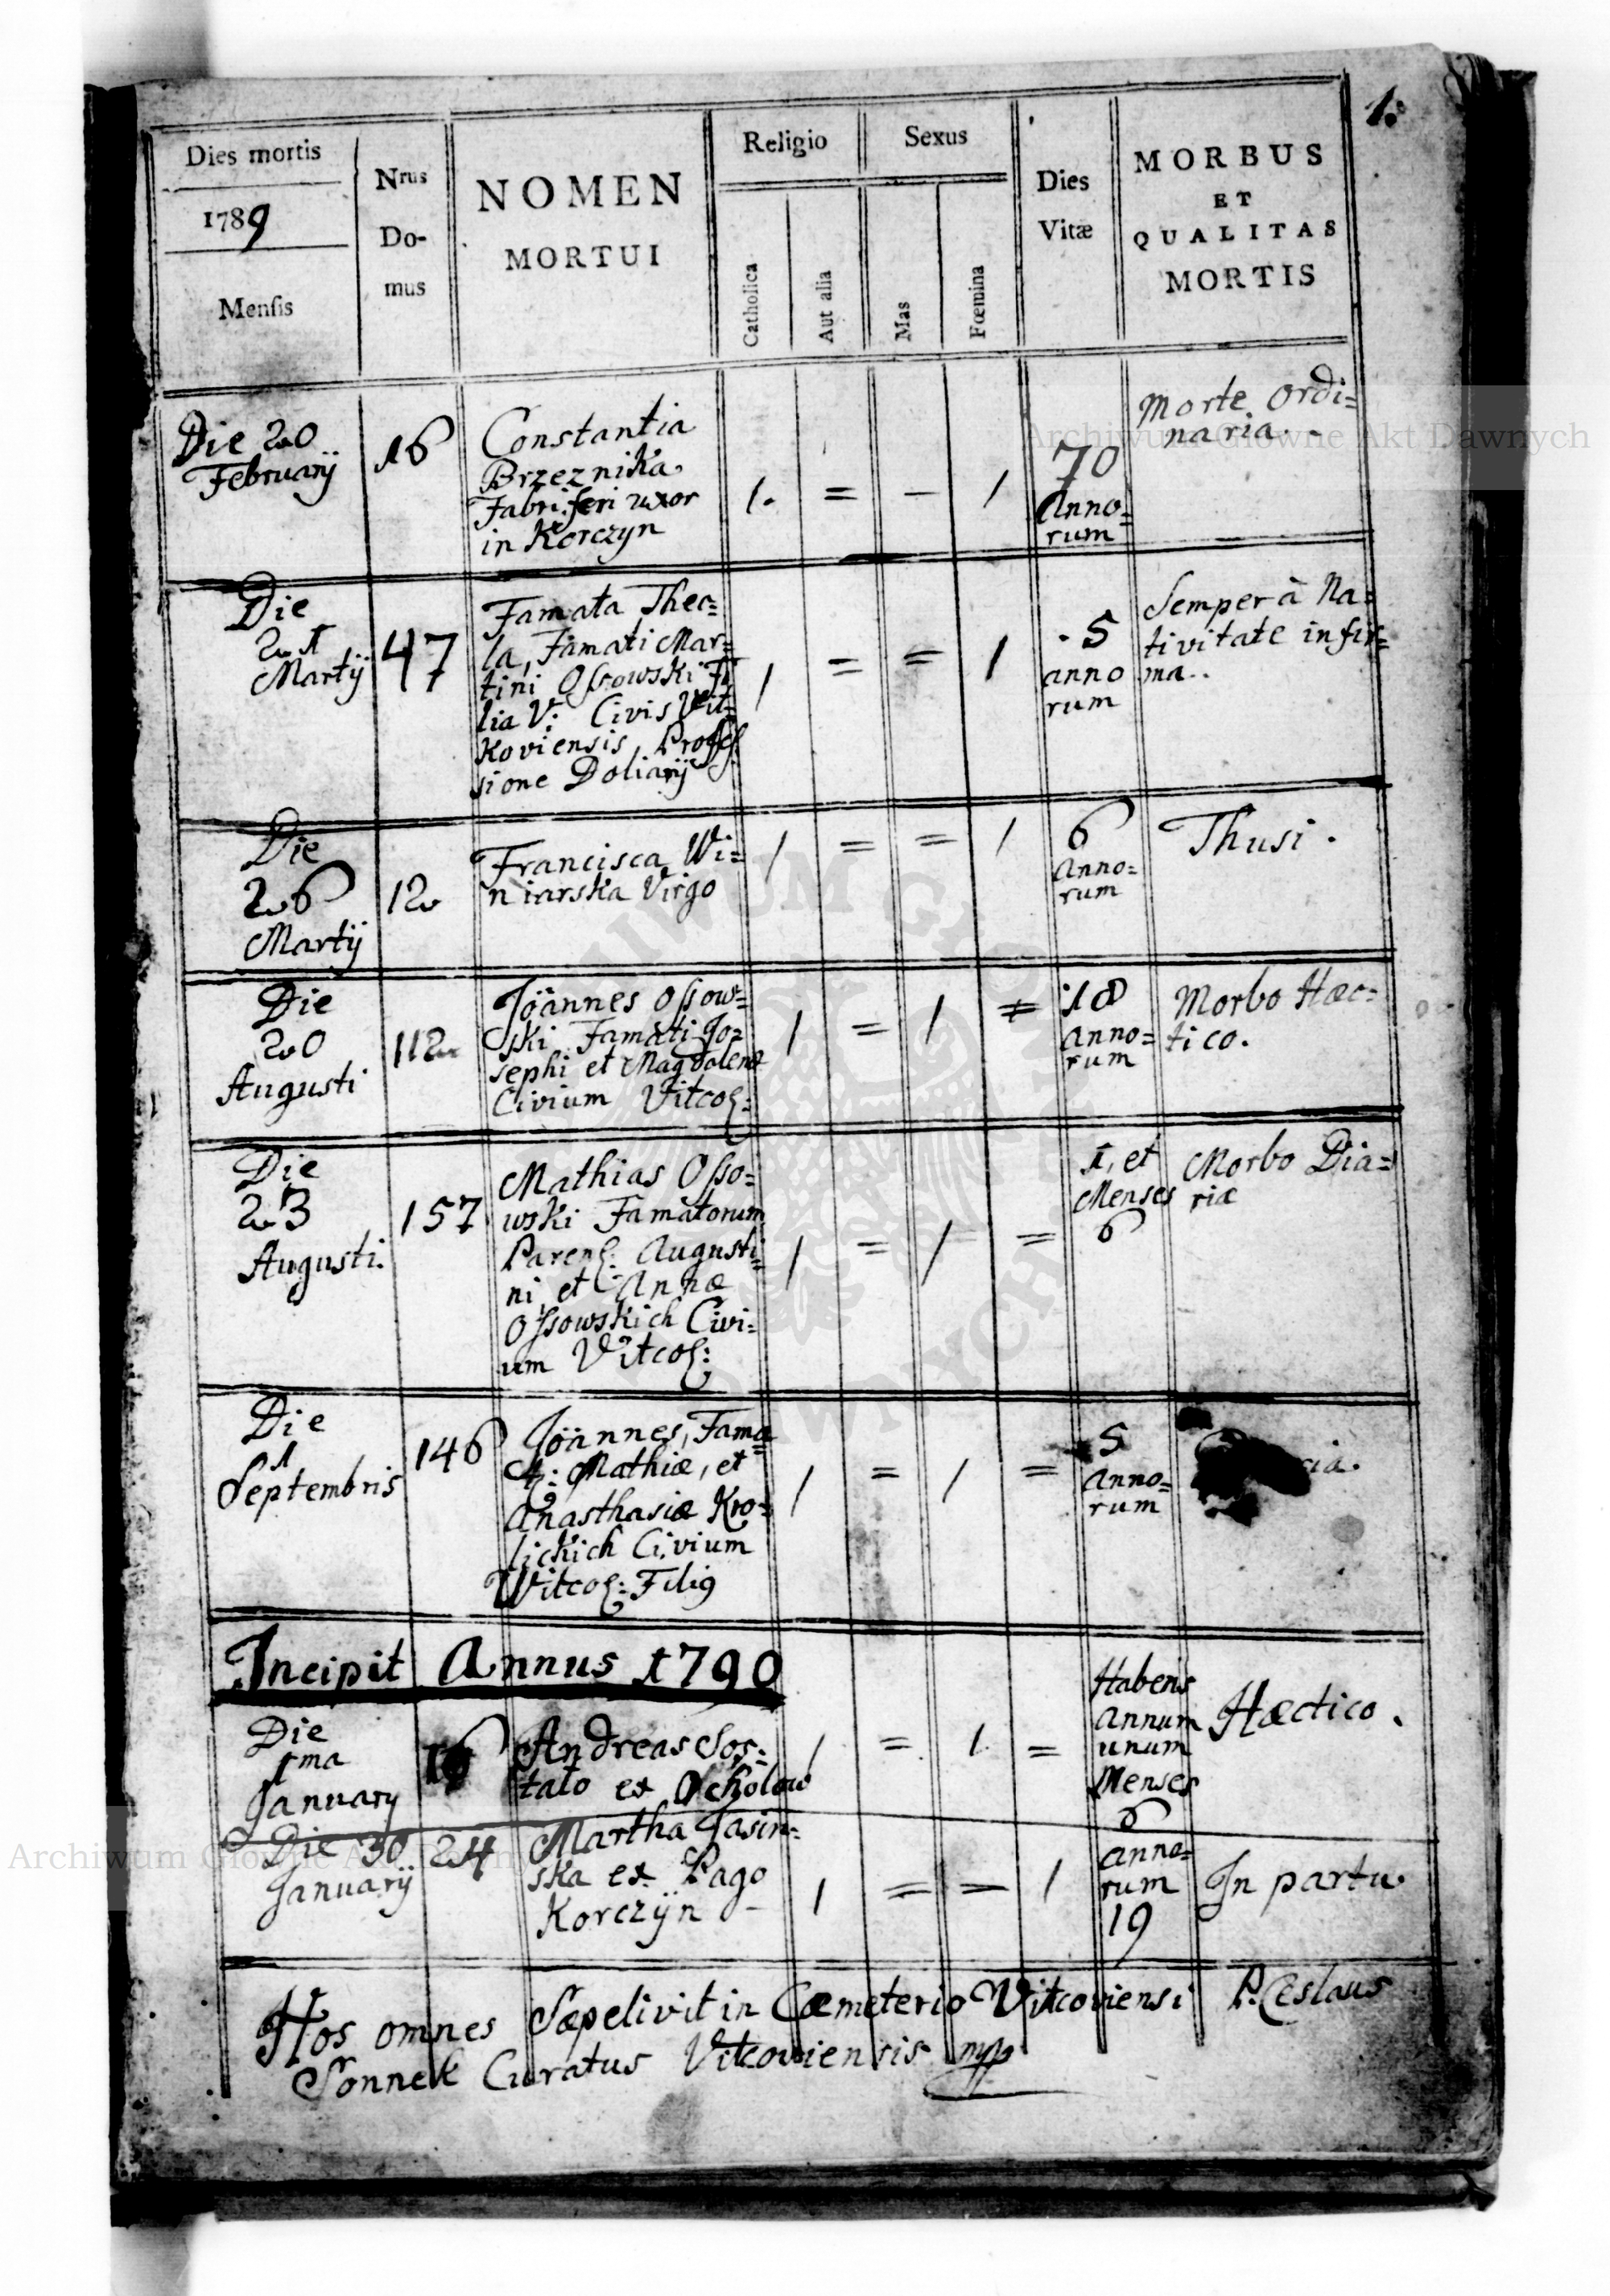 1.
Dies mortis
1789
Mensis
Nrus
Do-
mus
NOMEN
MORTUI
Religio
Catholica
Aut alia
Sexus
Mas
Fœmina
Dies
Vitæ
MORBUS
ET
QUALITAS
MORTIS
Die 20
Februarij
16
Constantia
Brzeznika
Fabri feri uxor
in Korczyn
1. = – 1
70
Anno=
rum
Morte Ordi=
naria.
Die
21
Martij
47
Famata Thec=
la, Famati Mar=
tini Ossowski Fi
lia V: Civis Vit=
koviensis, Profes
sione Doliarij
1 = = 1
5
anno
rum
Semper à Na=
tivitate infir=
ma..
Die
26
Martij
12
Francisca Wi=
niarska Virgo
1 = = 1
6
Anno=
rum
Thusi.
Die
20
Augusti
112
Joannes Ossow=
ski Famati Jo=
sephi et Magdalenæ
Civium Vitcos:
1 = 1 =
18
anno=
rum
Morbo Hæc=
tico.
Die
23
Augusti.
157
Mathias Osso=
wski Famatorum
Parens: Augusti=
ni, et Annæ
Ossowskich Civi=
um Vitcos:
1 = 1 =
1, et
Menses
6
Morbo Dia=
riæ
Die
1
Septembris
146
Joannes, Fama
Mathiæ, et
Anasthasiæ Kro=
lickich Civium
Witcos: Filig
1 = 1 =
5
Anno=
rum
Incipit Annus 1790
Die
1ma
January
16
Andreas Sos=
tato ex Ocholow
1 = 1 =
Habens
Annum
unum
Menses
6
Hæctico.
Die 30
Januarij
24
Martha Jasin=
ska ex Pago
Korczÿn
1 = = 1
anno=
rum
19
In partu
Hos omnes Sæpelivit in Cæmeterio Vitcoviensi P. Ceslaus
Sonnek Curatus Vitcoviensis mpp
Archiwum Główne Akt Dawnych
Archiwum Główne Akt Dawnych
ARCHIWUM GŁÓWNE AKT DAWNYCH